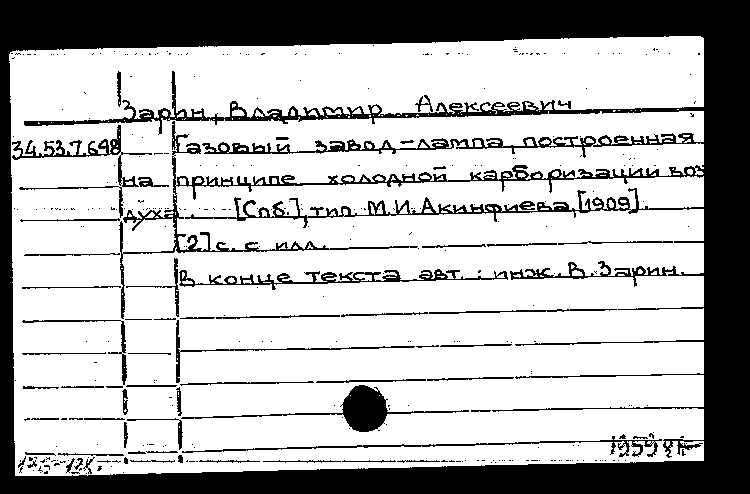 Зарин, Владимир Алексеевич
34.53.7.698 Газовый завод-лампа, построенная
на принципе холодной карборизации воз
духа. [Спб.], тип. М.И. Акинфиева, [1909].
[2] с. с илл.
В конце текста авт.: инж. В. Зарин.